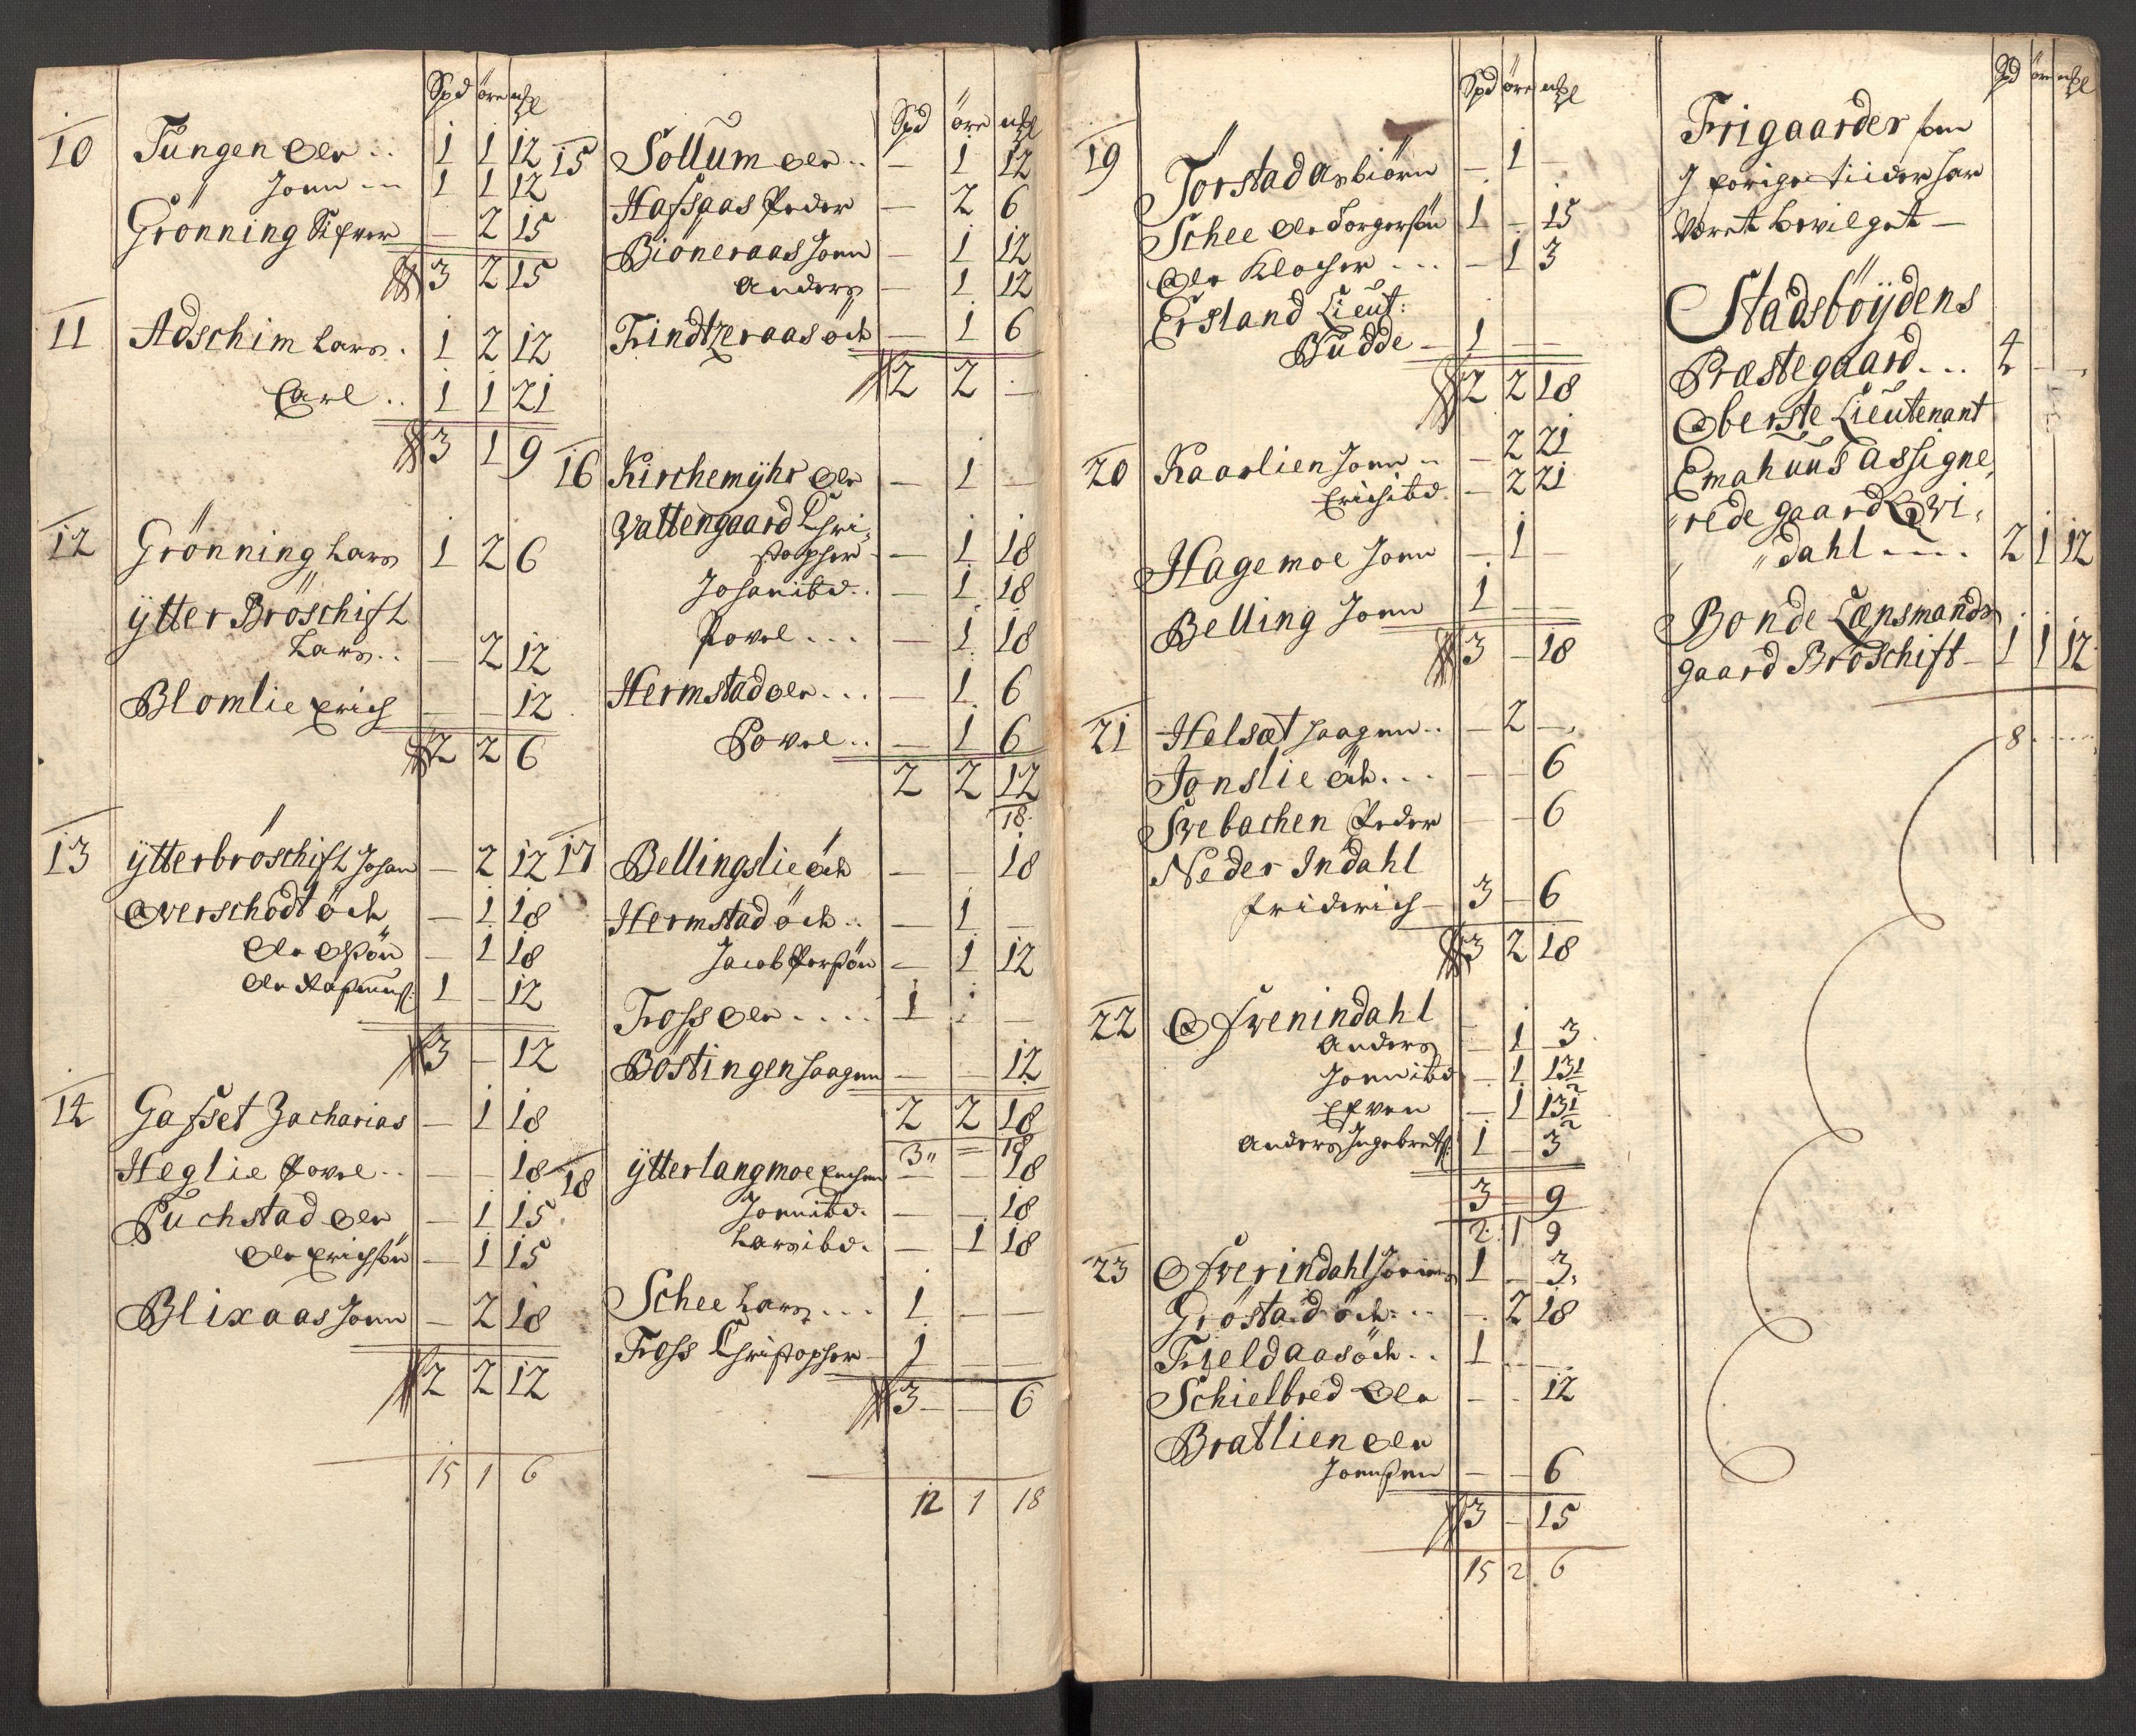 Spd öre mßl
10 Tungen Ole .. 1 1 12
Jonn -- 1 1 12
Grönning Sifver — 2 15
3 2 15
11 Adschim Lars . 1 2 12
Carl .. 1 1 21
3 1 9
12 Grönning Lars 1 2 6
ÿtter Bröschift
Lars .. — 2 12
Blomlie Erich — — 12
2 2 6
13 ÿtterbröschift Johan — 2 12
Overschodt öch — 1 18
Ole Olßön — 1 18
Ole Rasmuß: 1 — 12
3 — 12
14 Gafset Zacharias — 1 18
Heglie Povel .. — — 18
Puchstad Ole — 1 15
Ole Erichßön — 1 15
Blixaas Jonn — 2 18
2 2 12
15 1 6
Spd öre mßl
15 Sollum Ole .. — 1 12
Hafsaas Peder — 2 6
Bioneraas Jonn — 1 12
Anders — 1 12
Trindtzeraas öch — 1 6
2 2 —
16 Kirchemÿhr Ole — 1 —
Vattengaard Chri-
stopher — 1 18
Johan ibd .. — 1 18
Povel ... — 1 18
Hermstad Ole ... — 1 6
Povel .. — 1 6
2 2 12
18
17 Bellingslie öch — — 18
Hermstad öch .. — 1 —
Jacob Perßön — 1 12
Fross Ole .... 1 — —
Böstingen Haagen — — 12
2 2 18
3 " = 18
18 ÿtterlangmoe — — 18
Jonn ibd. — — 18
Lars ibd. — 1 18
Schee Lars ... 1 — —
Fross Christopher 1 — —
3 — 6
12 1 18
Spd öre mßl
19 Törstad Asbiörn — 1 —
Schee Ole Torgersön 1 — 15
Ole Klocher ... — 1 3
Ersland Lieut:
Budde — 1 — —
2 2 18
20 Kaarlien Jonn .. — 2 21
Erich ibd. — 2 21
Hagemoe Jonn — 1 —
Belling Jonn 1 — —
3 — 18
21 Helsæt Haagen .. — 2 —
Jonslie öch ... — — 6
Svebachen Peder — — 6
Neder Indahl
Friderich — 3 — 6
3 2 18
22 Ofwenindahl
Anders — 1 3
Jonn ibd — 1 13½
Efven — 1 13½
Anders Ingebretß: 1 — 3
3 — 9
2 1 9
23 Ofwerindahl 1 — 3
Gröstad öch: .. — 2 18
Fieldaas öch .. 1 — —
Schielbred Ole — — 12
Bratlien Ole
Jonnßen — — 6
3 — 15
15 2 6
Spd öre mßl
Frigaarder som
J forige tiider har
været bevilget —
Stadsböÿdens
Præstegaard ... 4 — —
Oberste Lieutenant
Emahuus assigne,
rede gaard Qvi,
dahl ---- 2 1 12
Bonde Lænsmands
gaard Bröschift — 1 1 12
8 . ...